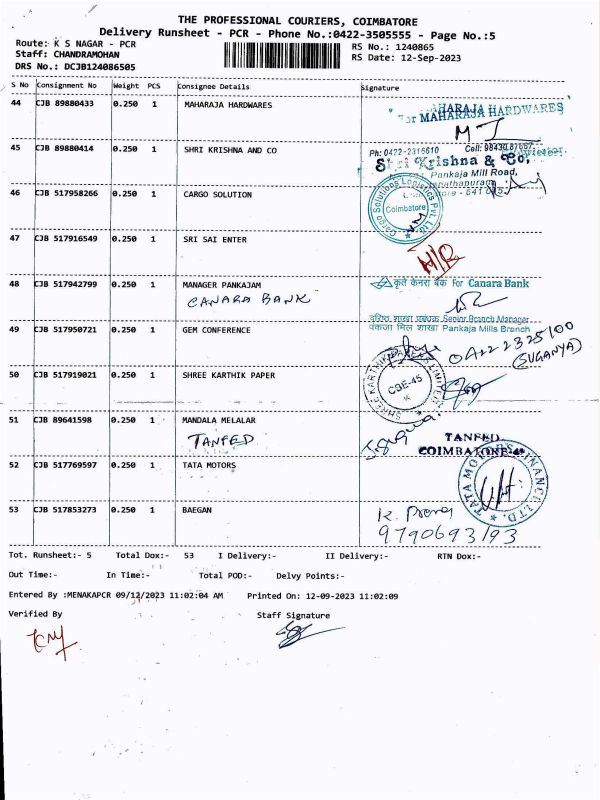 THE PROFESSIONAL COURIERS, COIMBATORE
Delivery Runsheet - PCR - Phone No.:0422-3505555 - Page No.:5
Route: K S NAGAR - PCR
RS No.: 1240865
Staff: CHANDRAMOHAN
RS Date: 12-Sep-2023
DRS No.: DCJB124086505
S No Consignment No Weight PCS Consignee Details Signature
44 CJB 89880433 0.250 1 MAHARAJA HARDWARES
For MAHARAJA HARDWARES
45 CJB 89880414 0.250 1 SHRI KRISHNA AND CO
Ph: 0422-2316610
Shri Krishna & Co,
Pankaja Mill Road,
46 CJB 517958266 0.250 1 CARGO SOLUTION
Cargo Solutions Logistics Pvt. Ltd.
Coimbatore
47 CJB 517916549 0.250 1 SRI SAI ENTER
N/R
48 CJB 517942799 0.250 1 MANAGER PANKAJAM
CANARA BANK
कृते केनरा बैंक For Canara Bank
वरिष्ठ शाखा प्रबंधक Senior Branch Manager
पंकजा मिल शाखा Pankaja Mills Branch
49 CJB 517950721 0.250 1 GEM CONFERENCE
(SUGANYA)
50 CJB 517919021 0.250 1 SHREE KARTHIK PAPER
SHREE KARTHIK PAPERS LIMITED
CBE-45
51 CJB 89641598 0.250 1 MANDALA MELALAR
TANFED
TANFED
COIMBATORE
52 CJB 517769597 0.250 1 TATA MOTORS
TATA MOTORS FINANCE LTD.
53 CJB 517853273 0.250 1 BAEGAN
9790693193
Tot. Runsheet:- 5 Total Dox:- 53 I Delivery:- II Delivery:- RTN Dox:-
Out Time:- In Time:- Total POD:- Delvy Points:-
Entered By :MENAKAPCR 09/12/2023 11:02:04 AM Printed On: 12-09-2023 11:02:09
Verified By Staff Signature